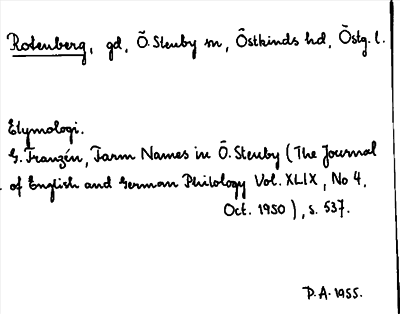 Rotenberg, gd, Ö. Stenby sn, Östkinds hd, Östg. l.
Etymologi.
G. Franzén, Farm Names in Ö. Stenby (The Journal
of English and German Philology Vol. XLIX, No 4,
Oct. 1950), s. 537.
P.A. 1955.